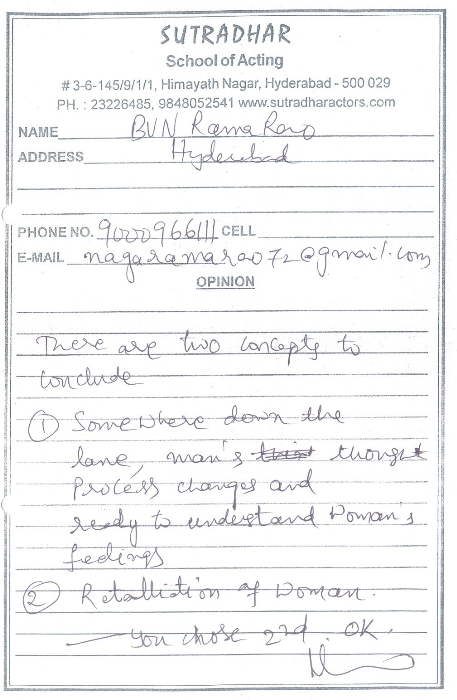 SUTRADHAR
School of Acting
# 3-6-145/9/1/1, Himayath Nagar, Hyderabad - 500 029
PH. : 23226485, 9848052541 www.sutradharactors.com
NAME BVN Rama Rao
ADDRESS Hyderabad
PHONE NO. 9000966111 CELL
E-MAIL nagaramarao72@gmail.com
OPINION
There are two concepts to
conclude
① Somewhere down the
lane, man's thought
Process changes and
ready to understand woman's
feelings
② Retalliation of woman.
— You chose 2nd. OK.